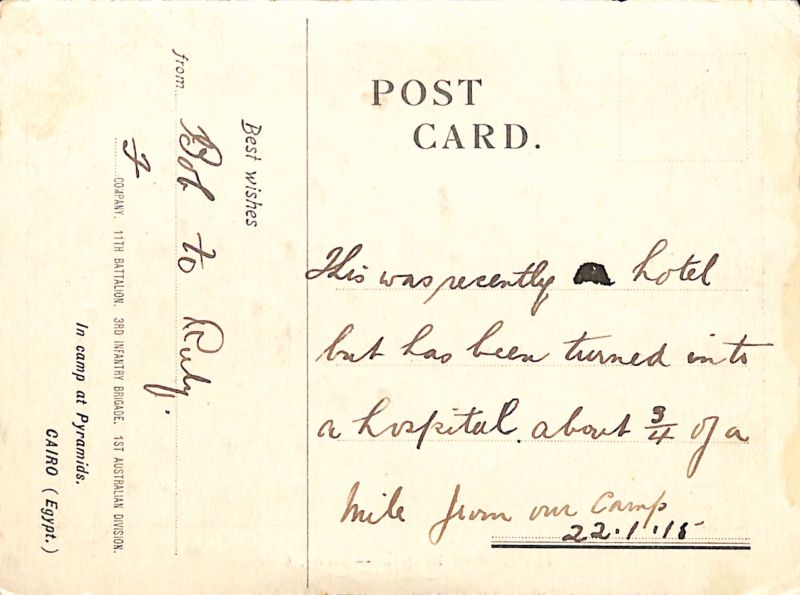 POST
CARD.
This was recently a hotel
but has been turned into
a hospital. about 3/4 of a
mile from our camp
22.1.15
Best wishes
from Bob to Ruby.
F COMPANY. 11TH BATTALION. 3RD INFANTRY BRIGADE. 1ST AUSTRALIAN DIVISION.
In camp at Pyramids.
CAIRO (Egypt.)